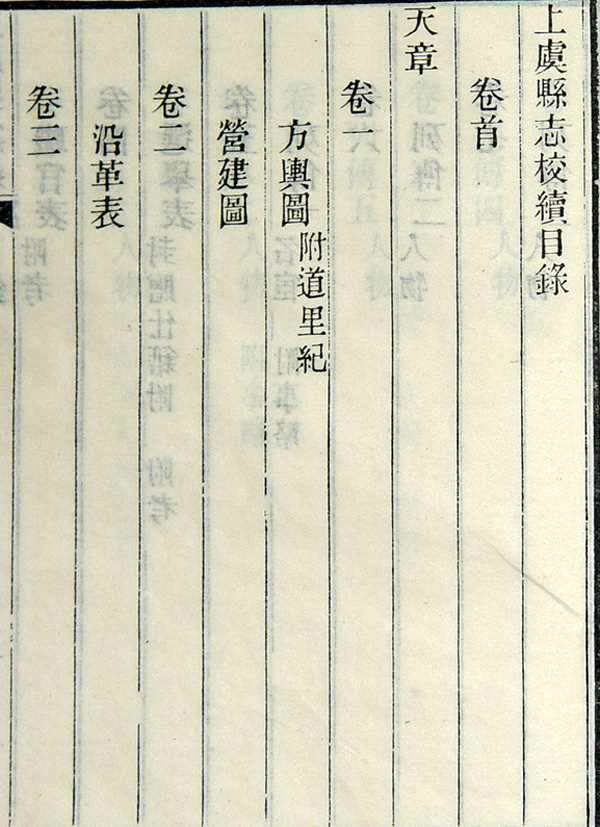 上虞縣志校續目錄
卷首
天章
卷一
方輿圖 附道里紀
營建圖
卷二
沿革表
卷三